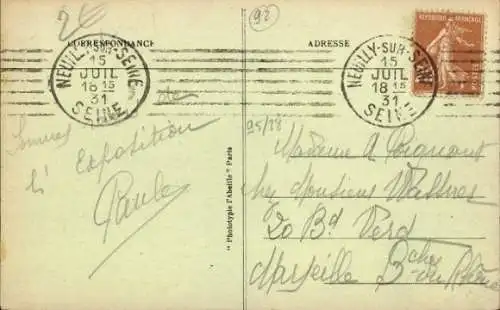 2€
92
CORRESPONDANCE
ADRESSE
NEUILLY-SUR-SEINE
15
JUIL
18 15
31
SEINE
NEUILLY-SUR-SEINE
15
JUIL
18 15
31
SEINE
REPUBLIQUE FRANÇAISE
de
l'Exposition
Paule
" Phototypie l'Abeille " Paris
95/18
Madame A Poignant
chez Monsieur
20 Bd Verd
Marseille Bches du Rhône